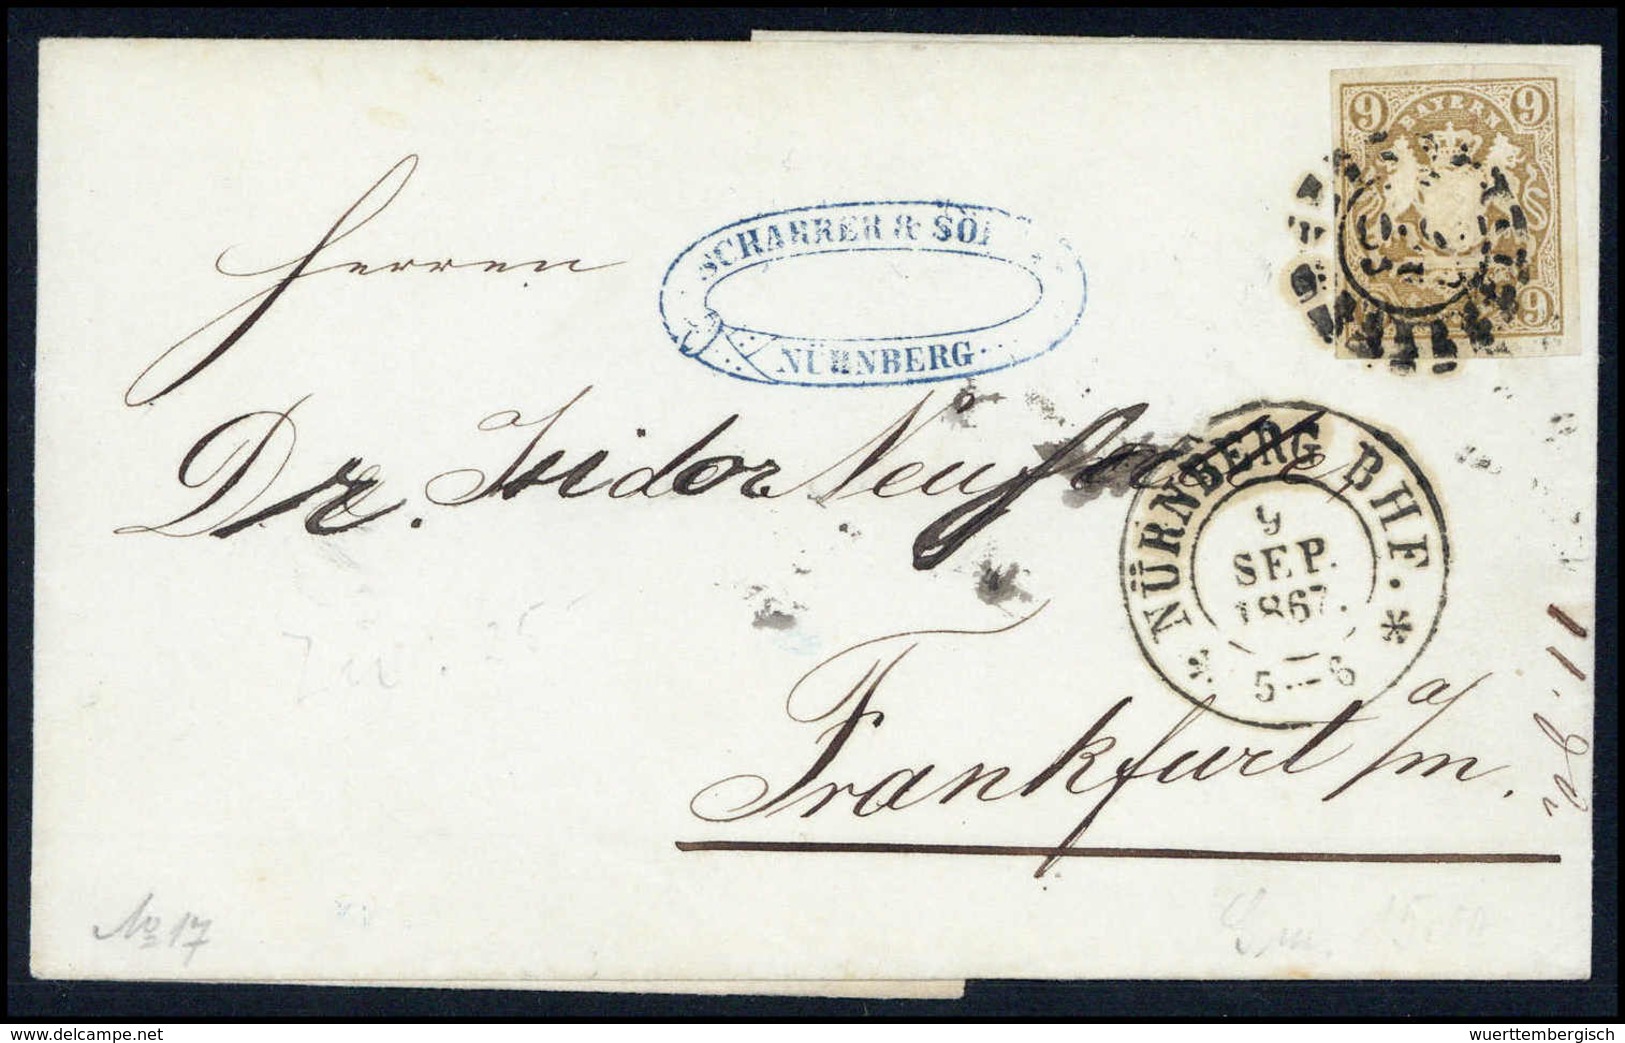 9 BAYERN 9
9
SCHARRER & SÖ
NÜRNBERG
Herren
Dr. Isidor Neu
NÜRNBERG BHF.
9
SEP.
1867.
5-6
Frankfurt a/m.
No 17
wuerttembergisch